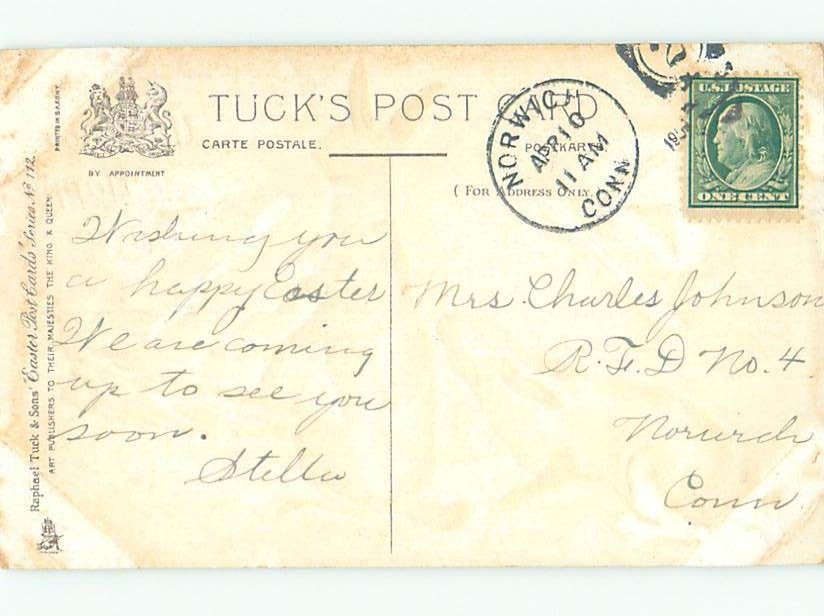 TUCK'S POST CARD
CARTE POSTALE.
POSTKARTE
BY APPOINTMENT
( FOR ADDRESS ONLY.
NORWICH
APR 10
11 AM
CONN
U.S. POSTAGE
ONE CENT
PRINTED IN SAXONY
Raphael Tuck & Sons' "Easter Post Cards" Series No 112.
ART PUBLISHERS TO THEIR MAJESTIES THE KING & QUEEN
Wishing you
a happy Easter
We are coming
up to see you
soon.
Stella
Mrs. Charles Johnson
R.F.D No. 4
Norwich,
Conn.